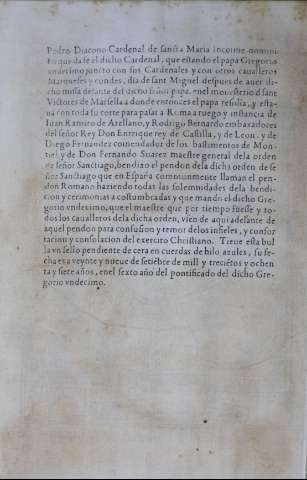 Pedro Diacono Cardenal de sancta Maria incosme domini
en que da fe el dicho Cardenal, que estando el papa Gregorio
vndecimo juncto con sus Cardenales y con otros caualleros
Marqueses y condes, dia de sant Miguel despues de auer di-
cho missa delante del dicho señor papa, en el monesterio de sant
Victores de Marsella a donde entonces el papa residia, y esta-
ua con toda su corte para passar a Roma a ruego y instancia de
Iuan Ramiro de Arellano, y Rodrigo Bernardo embaxadores
del señor Rey Don Enrrique rey de Castilla, y de Leon, y de
Diego Fernandez comendador de los bastimentos de Mon-
tiel y de Don Fernando Suarez maestre general dela orden
de señor Sanctiago, bendixo el pendon dela dicha orden de se
ñor Sanctiago que en España communmente llaman el pen-
don Romano haziendo todas las solemnidades dela bendi-
cion y cerimonias acostumbradas y que mando el dicho Gre-
gorio vndecimo, que el maestre que por tiempo fuesse y to-
dos los caualleros dela dicha orden, vsen de aqui adelante de
aquel pendon para confusion y temor delos infieles, y confor
tacion y consolacion del exercito Christiano. Tiene esta bul
la vn sello pendiente de cera en cuerdas de hilo azules, su fe-
cha es a veynte y nueue de setiēbre de mill y treciētos y ochen
ta y siete años, en el sexto año del pontificado del dicho Gre-
gorio vndecimo.